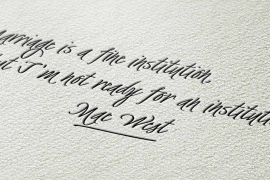 Marriage is a fine institution,
but I'm not ready for an institution
Mae West